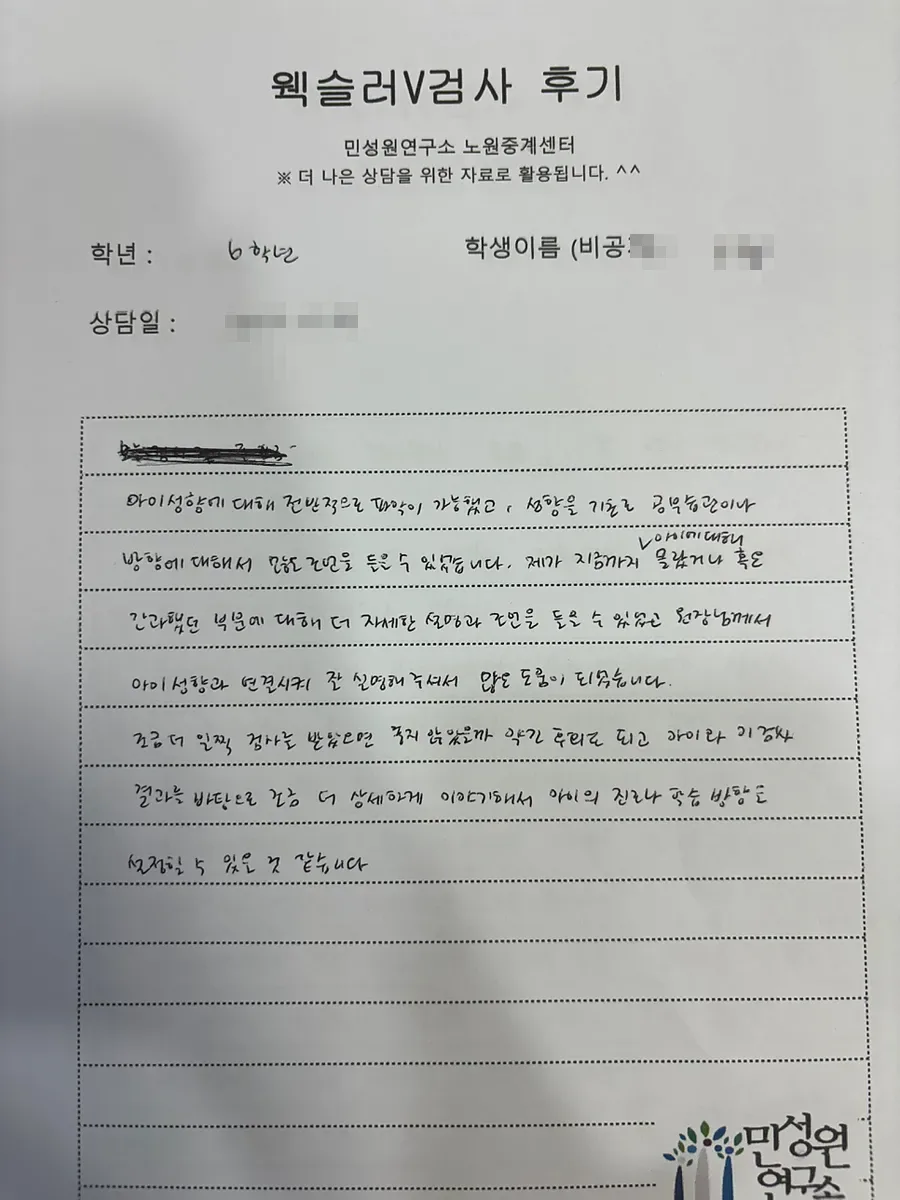 웩슬러V검사 후기
민성원연구소 노원중계센터
※ 더 나은 상담을 위한 자료로 활용됩니다. ^^
학년 : 6학년 학생이름 (비공
상담일 :
아이성향에 대해 전반적으로 파악이 가능했고, 성향을 기초로 공부습관이나
방향에 대해서 조언을 들을 수 있었습니다. 제가 지금까지 아이에대해 몰랐거나 혹은
간과했던 부분에 대해 더 자세한 설명과 조언을 들을 수 있었고 원장님께서
아이성향과 연결시켜 잘 설명해주셔서 많은 도움이 되었습니다.
조금 더 일찍 검사를 받았으면 좋지 않았을까 약간 후회도 되고 아이와 이검사
결과를 바탕으로 조금 더 상세하게 이야기해서 아이의 진로나 학습 방향도
설정할 수 있을 것 같습니다
민성원
연구소